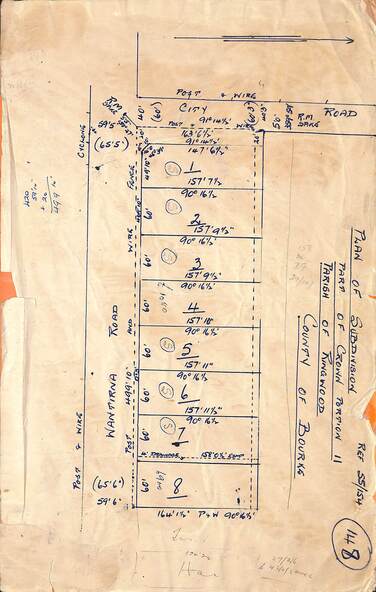 POST & WIRE
CITY
ROAD
R.M
59'5"
(65'5")
CYCLONE
40'
(60')
POST & WIRE
91°14½'
163'6½"
91°14½'
147'6½"
5'0"
R.M
1
157'7½"
90°16½'
60'
2
157'9½"
90°16½'
60'
3
157'9½"
90°16½'
60'
4
157'10"
90°16½'
60'
5
157'11"
90°16½'
60'
6
157'11½"
90°16½'
60'
7
60'
8
164'1½" P&W 90°16½'
(65'6")
59'6"
WANTIRNA ROAD
POST AND WIRE FENCE
POST & WIRE
PLAN OF SUBDIVISION REF 55/154
PART OF CROWN PORTION 11
PARISH OF RINGWOOD
COUNTY OF BOURKE
148